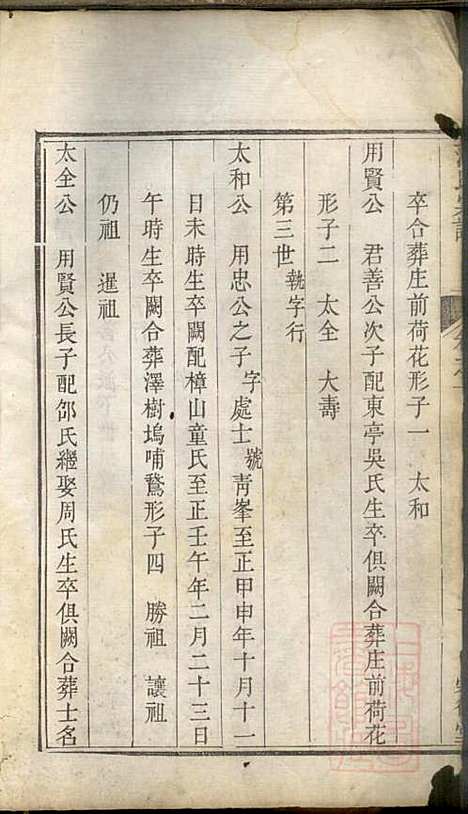 卒合葬庄前荷花形子一　太和
用賢公　君善公次子配東亭吳氏生卒俱闕合葬庄前荷花
形子二　太全　大壽
第三世執字行
太和公　用忠公之子字處士號靑峯至正甲申年十月十一
日未時生卒闕配樟山童氏至正壬午年二月二十三日
午時生卒闕合葬澤樹塢哺鵞形子四　勝祖　讓祖
仍祖　暹祖
太全公　用賢公長子配邵氏繼娶周氏生卒俱闕合葬士名